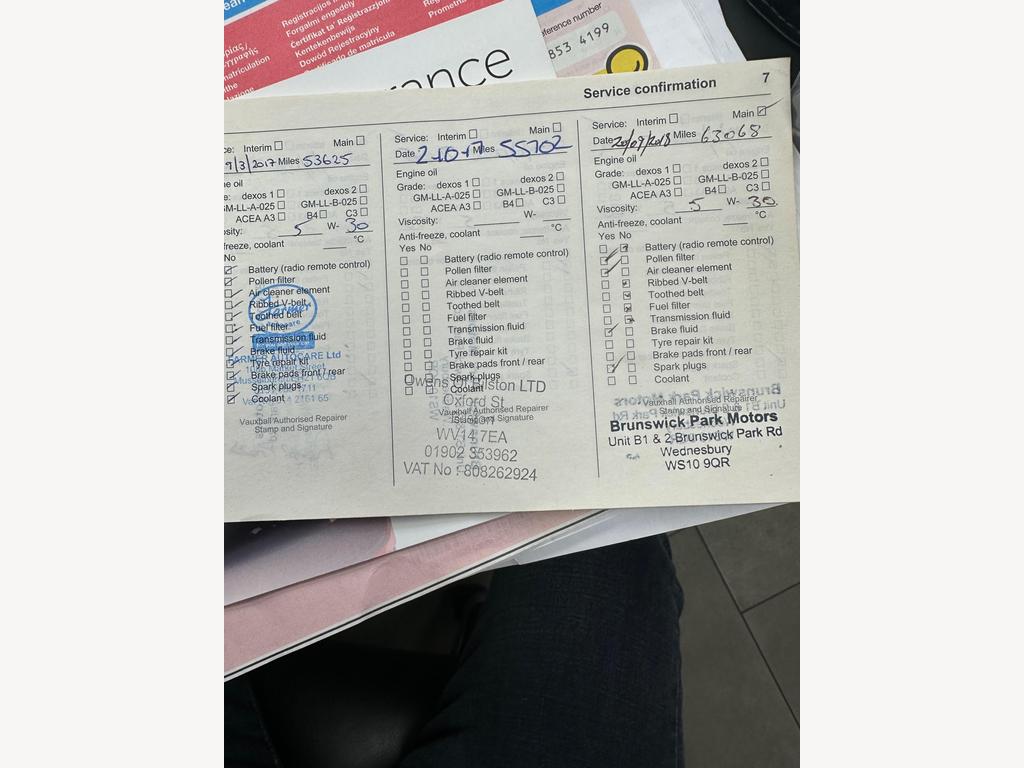 Registracijos l
Forgalmi engedély
Ċertifikat ta' Reġistrazzjoni
Kentekenbewijs
Dowód Rejestracyjny
Certificado de matrícula
matriculation
the
rance
ference number
853 4199
Service confirmation 7
ce: Interim Main
9/3/2017 Miles 53625
ne oil
e: dexos 1 dexos 2
M-LL-A-025 GM-LL-B-025
ACEA A3 B4 C3
osity: 5 W- 30
freeze, coolant °C
No
Battery (radio remote control)
Pollen filter
Air cleaner element
Ribbed V-belt
Toothed belt
Fuel filter
Transmission fluid
Brake fluid
Tyre repair kit
Brake pads front / rear
Spark plugs
Coolant
Farmer
Autocare
FARMER AUTOCARE Ltd
Vauxhall Authorised Repairer
Stamp and Signature
Service: Interim Main
Date Miles 55702
Engine oil
Grade: dexos 1 dexos 2
GM-LL-A-025 GM-LL-B-025
ACEA A3 B4 C3
Viscosity: W-
Anti-freeze, coolant °C
Yes No
Battery (radio remote control)
Pollen filter
Air cleaner element
Ribbed V-belt
Toothed belt
Fuel filter
Transmission fluid
Brake fluid
Tyre repair kit
Brake pads front / rear
Spark plugs
Coolant
Owens Of Bilston LTD
Oxford St
Vauxhall Authorised Repairer
Stamp and Signature
WV14 7EA
01902 353962
VAT No : 808262924
Service: Interim Main
Date 20/09/2018 Miles 63068
Engine oil
Grade: dexos 1 dexos 2
GM-LL-A-025 GM-LL-B-025
ACEA A3 B4 C3
Viscosity: 5 W- 30
Anti-freeze, coolant °C
Yes No
Battery (radio remote control)
Pollen filter
Air cleaner element
Ribbed V-belt
Toothed belt
Fuel filter
Transmission fluid
Brake fluid
Tyre repair kit
Brake pads front / rear
Spark plugs
Coolant
Vauxhall Authorised Repairer
Stamp and Signature
Brunswick Park Motors
Unit B1 & 2 Brunswick Park Rd
Wednesbury
WS10 9QR